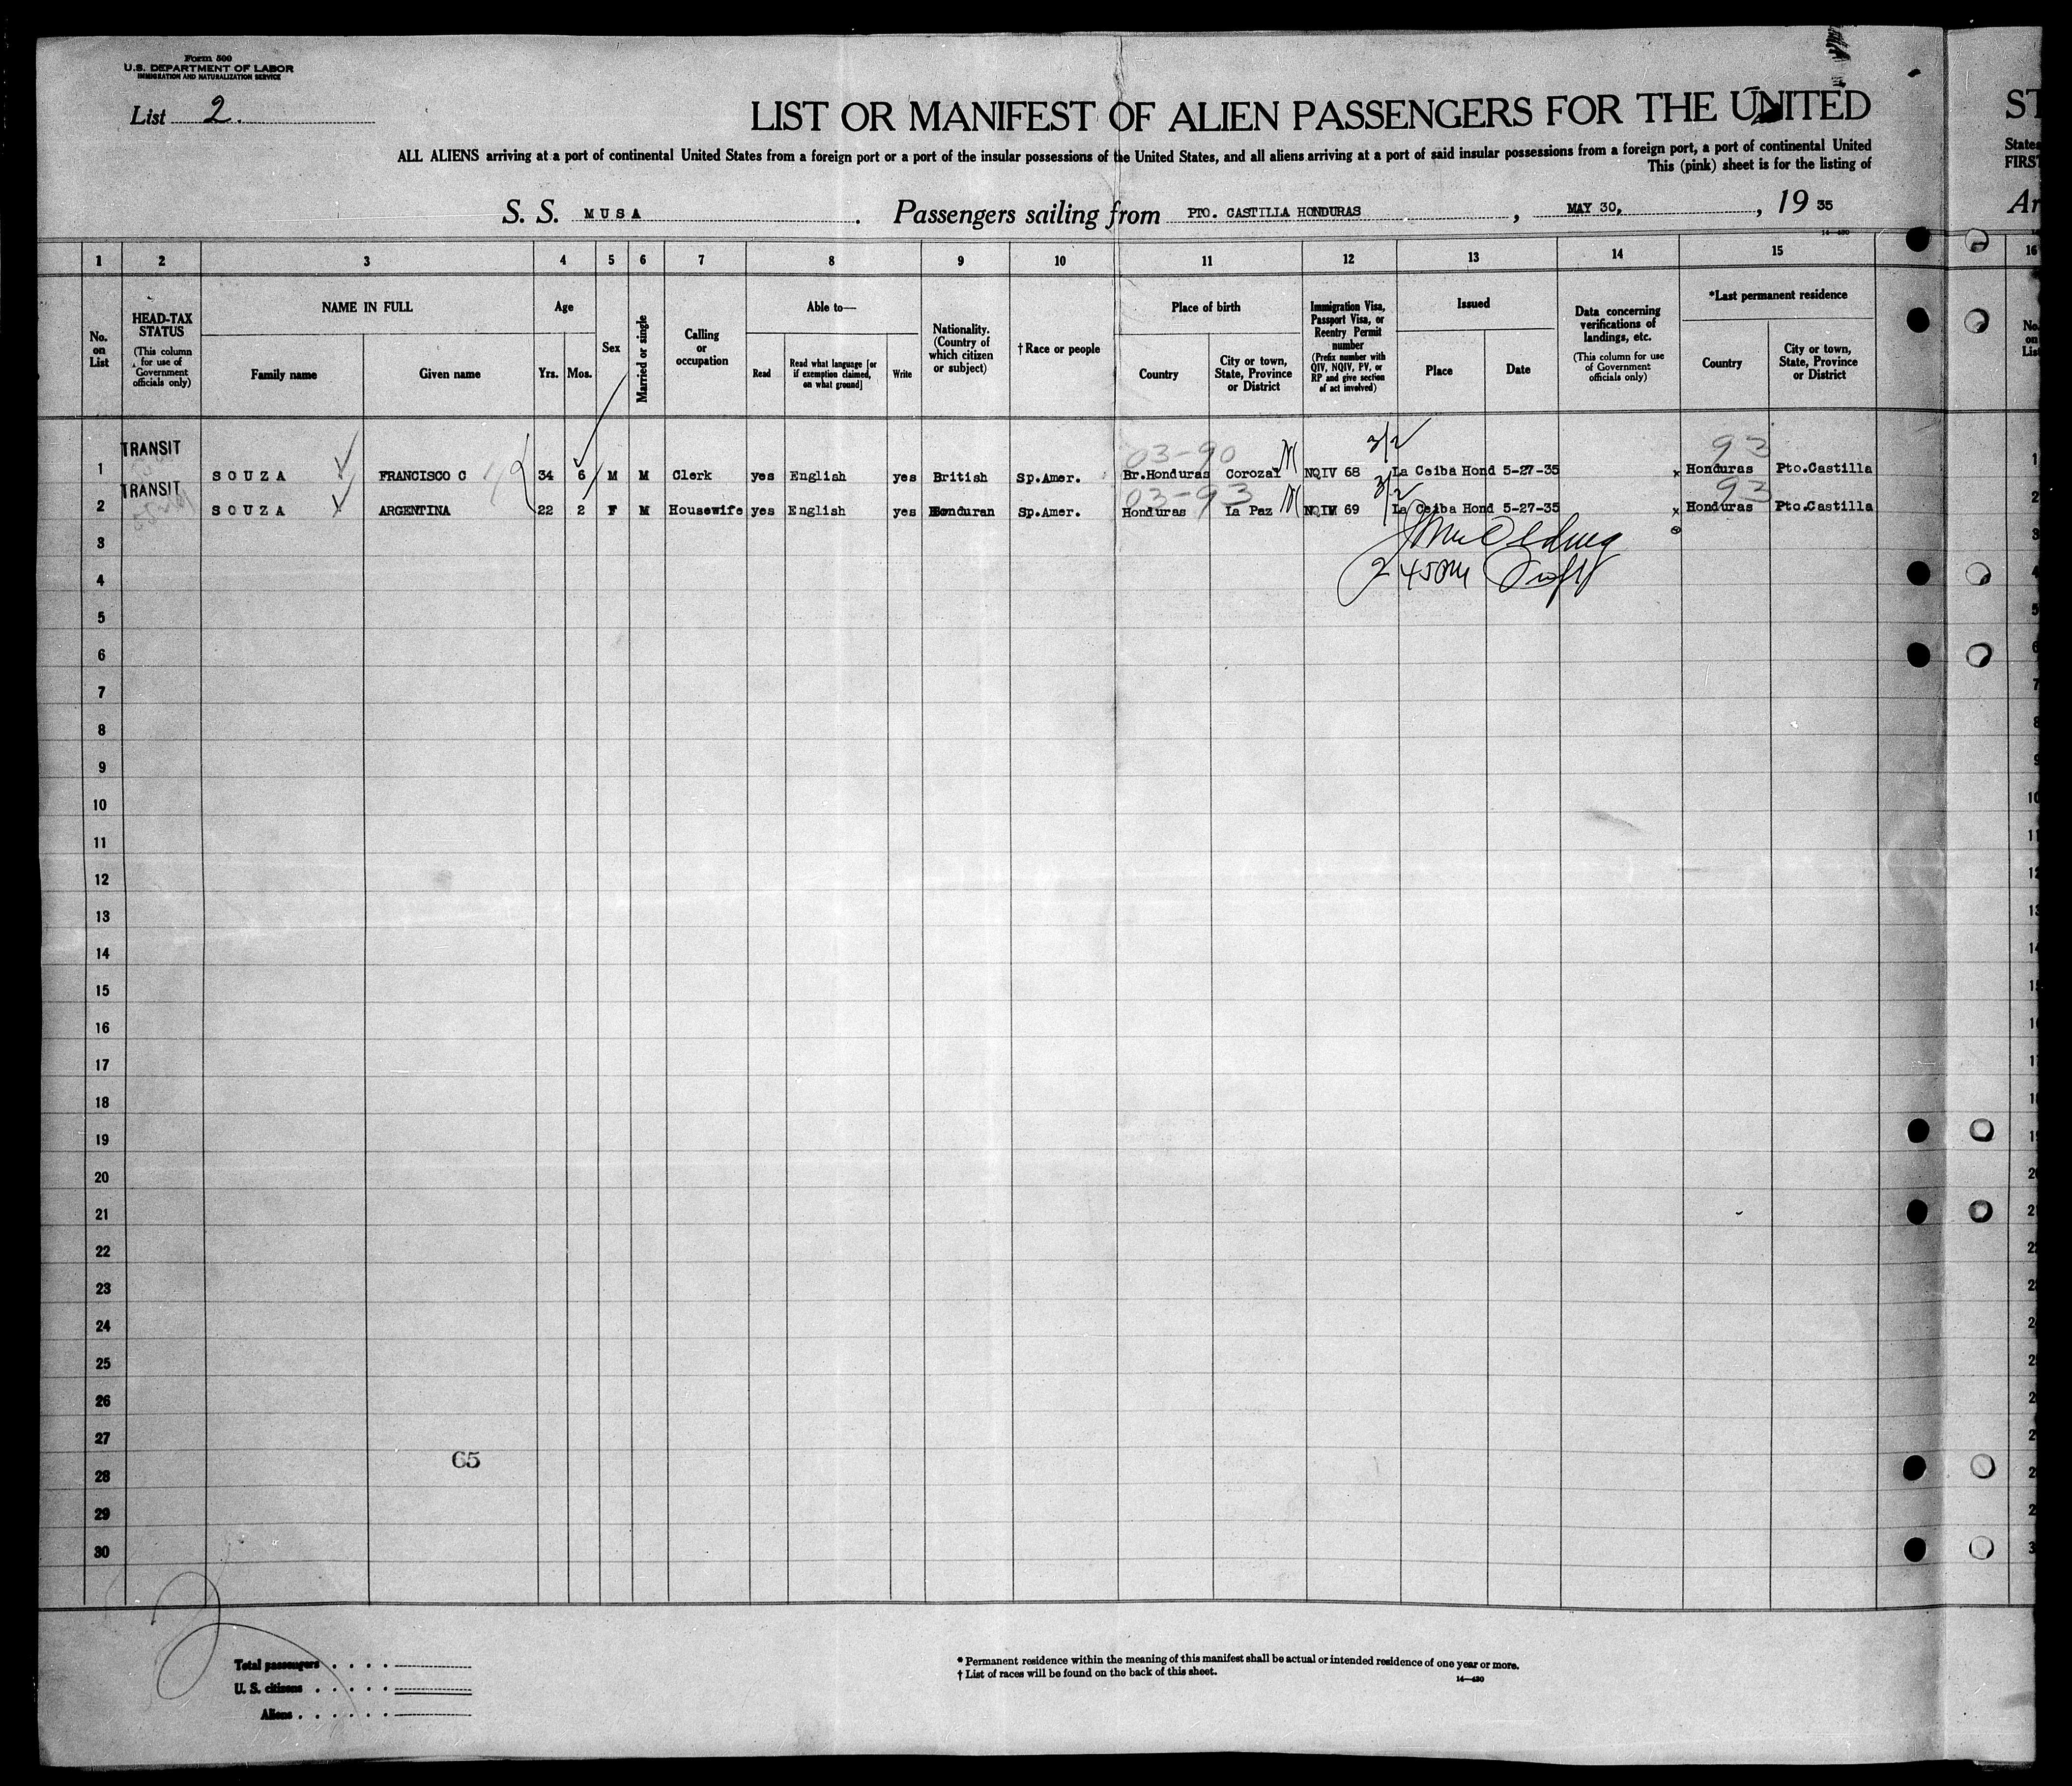 Form 500
U.S. DEPARTMENT OF LABOR
IMMIGRATION AND NATURALIZATION SERVICE
List 2.
LIST OR MANIFEST OF ALIEN PASSENGERS FOR THE UNITED
ST
ALL ALIENS arriving at a port of continental United States from a foreign port or a port of the insular possessions of the United States, and all aliens arriving at a port of said insular possessions from a foreign port, a port of continental United
States
This (pink) sheet is for the listing of
FIRST
S. S. MUSA . Passengers sailing from PTO. CASTILLA HONDURAS , MAY 30, , 19 35
Ar
14—430
1 2 3 4 5 6 7 8 9 10 11 12 13 14 15 16
No. on List
HEAD-TAX STATUS
(This column for use of Government officials only)
NAME IN FULL
Family name
Given name
Age
Yrs.
Mos.
Sex
Married or single
Calling or occupation
Able to—
Read
Read what language [or if exemption claimed, on what ground]
Write
Nationality. (Country of which citizen or subject)
†Race or people
Place of birth
Country
City or town, State, Province or District
Immigration Visa, Passport Visa, or Reentry Permit number
(Prefix number with QIV, NQIV, PV, or RP and give section of act involved)
Issued
Place
Date
Data concerning verifications of landings, etc.
(This column for use of Government officials only)
*Last permanent residence
Country
City or town, State, Province or District
No. on List
TRANSIT
03-90
3/2
93
1 SOUZA FRANCISCO C 34 6 M M Clerk yes English yes British Sp.Amer. Br.Honduras Corozal NQIV 68 La Ceiba Hond 5-27-35 x Honduras Pto.Castilla 1
TRANSIT
03-93
3/2
93
2 SOUZA ARGENTINA 22 2 F M Housewife yes English yes Honduran Sp.Amer. Honduras La Paz NQIV 69 La Ceiba Hond 5-27-35 x Honduras Pto.Castilla 2
3
4
5
6
7
8
9
10
11
12
13
14
15
16
17
18
19
20
21
22
23
24
25
26
27
65
28
29
30
Total passengers . . . .
U. S. citizens . . . . .
Aliens . . . . . .
* Permanent residence within the meaning of this manifest shall be actual or intended residence of one year or more.
† List of races will be found on the back of this sheet.
14—430